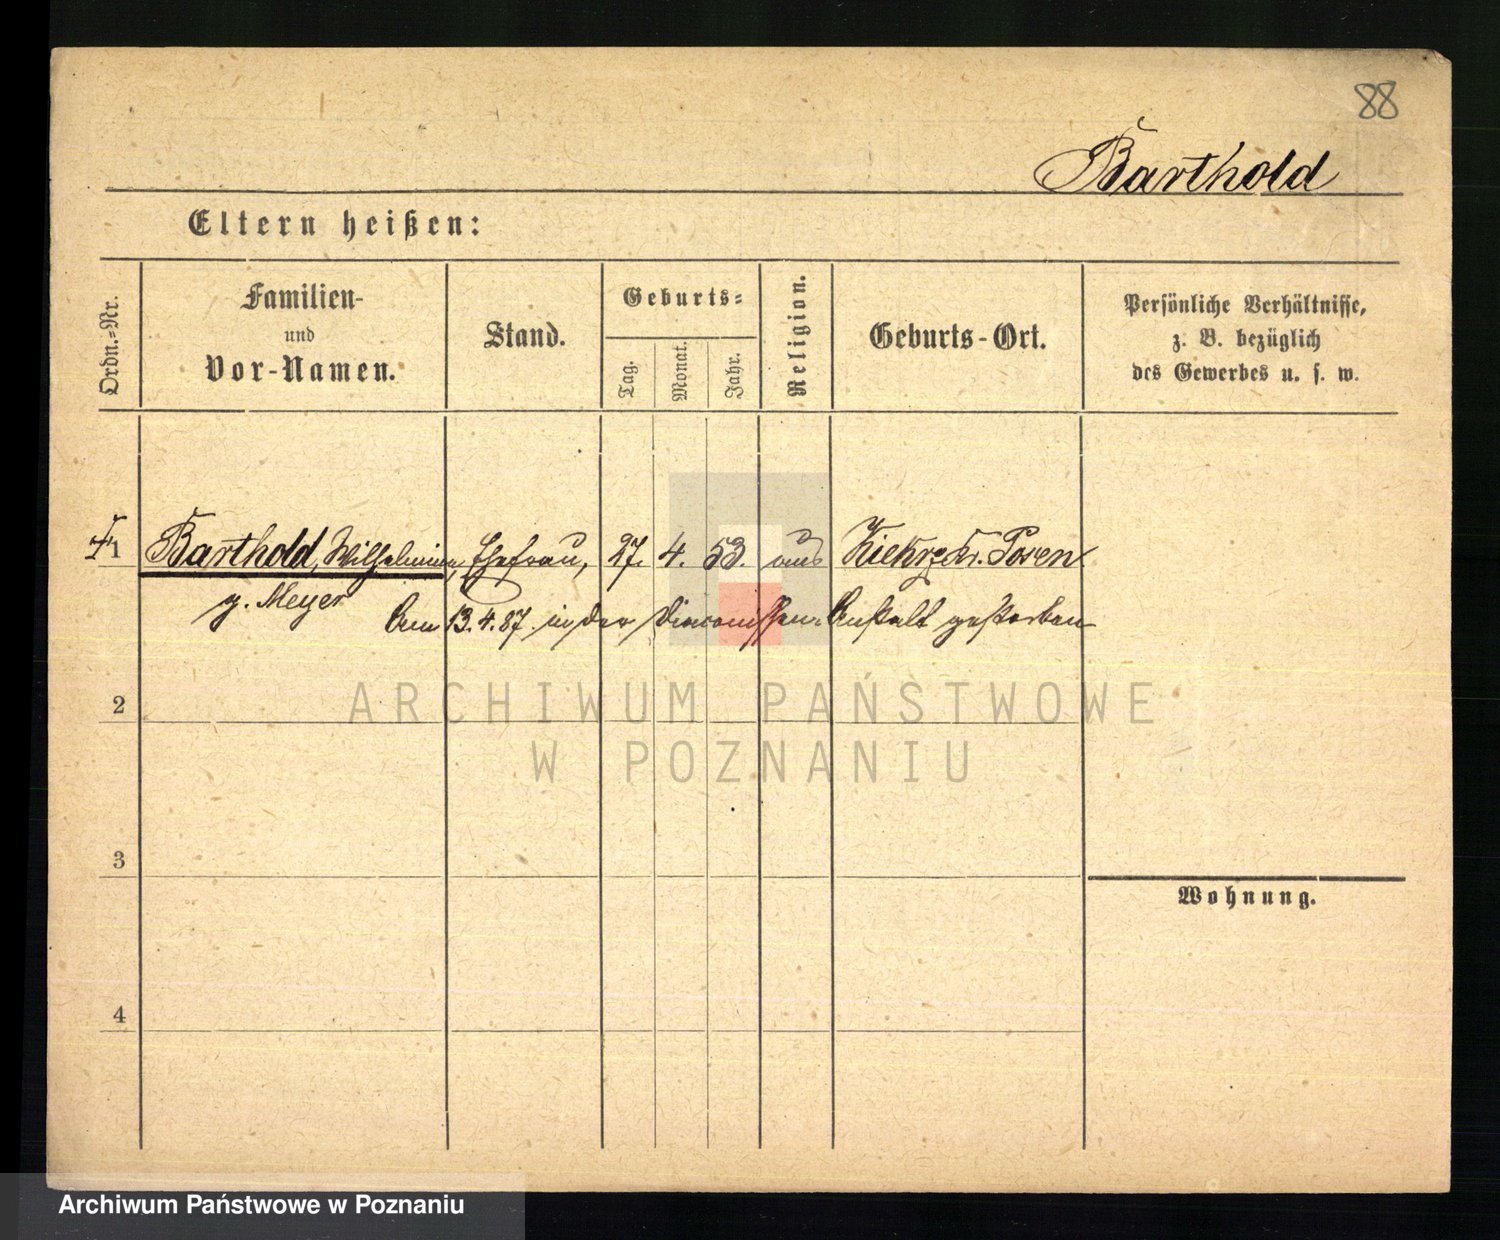 88
Barthold
Eltern heißen:
Ordn.-Nr.
Familien-
und
Vor-Namen.
Stand.
Geburts-
Tag.
Monat.
Jahr.
Religion.
Geburts-Ort.
Persönliche Verhältnisse,
z. B. bezüglich
des Gewerbes u. s. w.
1 Barthold, Wilhelmine, Ehefrau, 27. 4. 53. aus Kiekrz Kr. Posen
g. Meyer
Am 13.4.87 in der Diaconissen-Anstalt gestorben
2
ARCHIWUM PAŃSTWOWE
W POZNANIU
3
Wohnung.
4
Archiwum Państwowe w Poznaniu